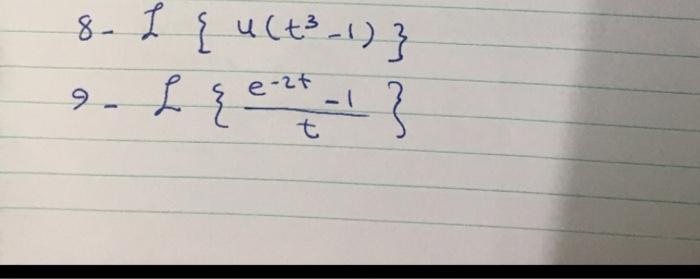 8- L { u(t³-1) }
9- L { (e^-2t - 1)/t }